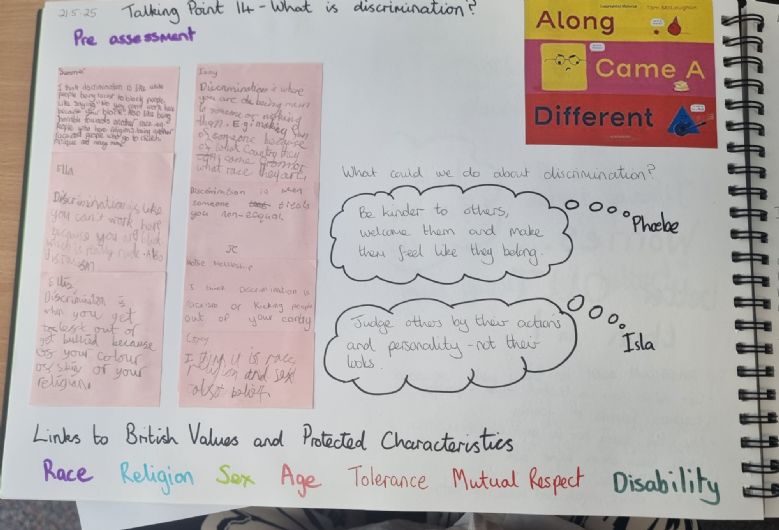 21.5.25 Talking Point 14 - What is discrimination?
Pre assessment
Summer
I think discrimination is like white
people being
to black people.
like saying "No you can't work here
because your black. Also like being
horrible towards another race or
people who have religions being
Ella
Discrimination is like
you can't work here
because you are black
which is really rude. Also
Ellis
Discrimination is
when you get
left out or
get bullied because
of your colour
of skin or your
religion.
Discrimination is whe
you are
being mean
to someone or
them. E.g. making fun
of someone because
of what country they
come from or
what race they are.
Discrimination is when
someone treats
you non-equal
JC
I think Discrimination is
racism or kicking people
out of your contry
I
it is race
religion and sex
Along
Came A
Different
Tom McLaughlin
What could we do about discrimination?
Be kinder to others,
welcome them and make
them feel like they belong.
Phoebe
Judge others by their actions
and personality - not their
looks.
Isla
Links to British Values and Protected Characteristics
Race Religion Sex Age Tolerance Mutual Respect Disability